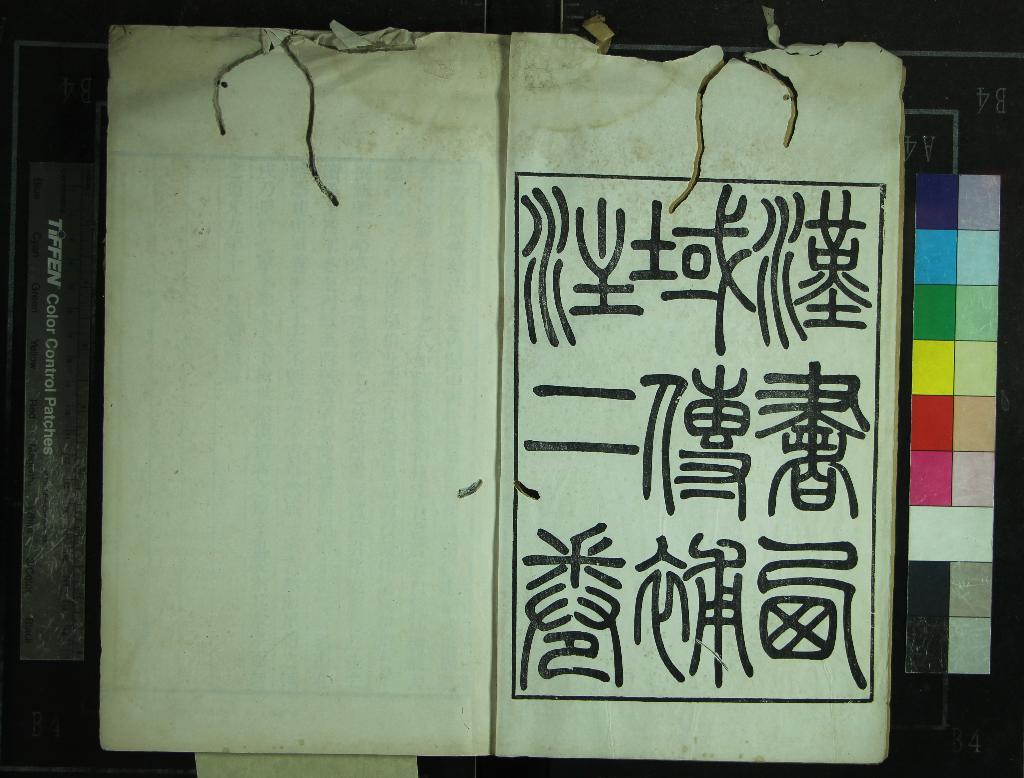 漢書西
域傳補
注二卷
TIFFEN Color Control Patches
Blue Cyan Green Yellow Red
B4
B4
A4
B4
B4